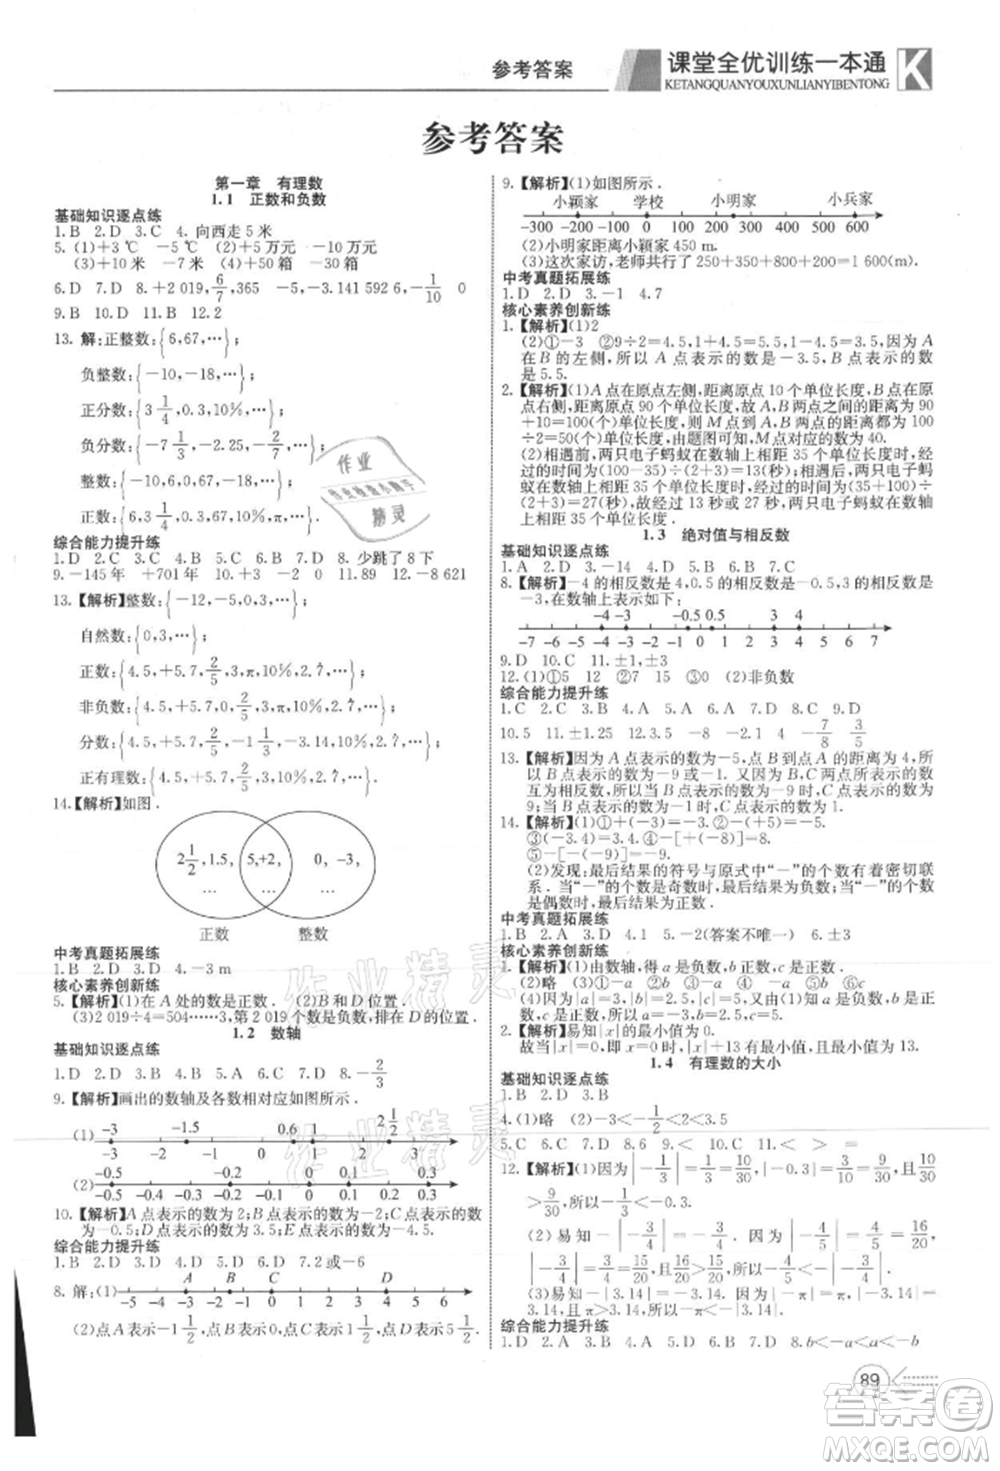 参考答案
课堂全优训练一本通
KETANGQUANYOUXUNLIANYIBENTONG
K
参考答案
第一章 有理数
1.1 正数和负数
基础知识逐点练
1.B 2.D 3.C 4.向西走5米
5.(1)+3℃ -5℃ (2)+5万元 -10万元
(3)+10米 -7米 (4)+50箱 -30箱
6.D 7.D 8.+2 019,6/7,365 -5,-3.141 592 6,-1/10 0
9.B 10.D 11.B 12.2
13.解:正整数:{6,67,…};
负整数:{-10,-18,…};
正分数:{3 1/4,4,0.3,10%,…};
负分数:{-7 1/3,-2.25,-2/7,…};
正数:{6,3 1/4,0.3,67,10%,…}.
综合能力提升练
1.D 2.C 3.C 4.B 5.B 6.D 7.D 8.少跳了8下
9.-145年 +701年 10.+3 11.89 12.-8 621
13.【解析】整数:{-12,-5,0,3,…};
自然数:{0,3,…};
正数:{4.5,+5.7,2/5,3,π,10%,2.7,…};
非负数:{4.5,+5.7,0,2/5,3,π,10%,2.7,…};
分数:{4.5,+5.7,2/5,-1 1/3,-3.14,10%,2.7,…};
正有理数:{4.5,+5.7,2/5,3,10%,2.7,…}.
14.【解析】如图.
2 1/2,1.5, 5,+2, 0,-3,
… … …
正数 整数
中考真题拓展练
1.B 2.D 3.D 4.-3 m
核心素养创新练
5.【解析】(1)在A处的数是正数. (2)B和D位置.
(3)2 019÷4=504……3,第2 019个数是负数,排在D的位置.
1.2 数轴
基础知识逐点练
1.D 2.D 3.C 4.B 5.B 6.C 7.C 8.-2/3
9.【解析】画出的数轴及各数如图所示.
(1) -3 -1.5 0 2/3 1 2.5
-4 -3 -2 -1 0 1 2 3 4
(2) -0.5 -0.3 -0.1 0 0.2 0.4
-0.5 -0.4 -0.3 -0.2 -0.1 0 0.1 0.2 0.3 0.4
10.【解析】A点表示的数为2,B点表示的数为-2,C点表示的数为-0.5,D点表示的数为3.5,E点表示的数为-4.5.
综合能力提升练
1.B 2.B 3.D 4.B 5.C 6.D 7.2或-6
8.解:(1) A B C D
-5 -4 -3 -2 -1 0 1 2 3 4 5
(2)点A表示-1 1/2,点B表示1 1/2,点D表示5 1/2.
9.【解析】(1)如图所示.
小颖家 学校 小明家 小兵家
-300 -200 -100 0 100 200 300 400 500 600
(2)小明家距离小颖家450 m.
(3)这次家访,老师共行了250+350+800+200=1 600(m).
中考真题拓展练
1.D 2.D 3.-1 4.7
核心素养创新练
1.【解析】(1)2
(2)①-3 ②9÷2=4.5,1+4.5=5.5,1-4.5=-3.5,因为A
在B的左侧,所以A点表示的数是-3.5,B点表示的数
是5.5.
2.【解析】(1)A点在原点左侧,距离原点10个单位长度,B点在原
点右侧,距离原点90个单位长度,故A,B两点之间的距离为90
+10=100(个)单位长度,则M点到A,B两点的距离为100
÷2=50(个)单位长度,由题图可知,M点对应的数为40.
(2)相遇前,两只电子蚂蚁在数轴上相距35个单位长度所需时间
为(100-35)÷(2+3)=13秒;相遇后,两只电子蚂
蚁在数轴上相距35个单位长度所需时间为(100+35)÷
(2+3)=27(秒),故经过13秒或27秒,两只电子蚂蚁在数轴
上相距35个单位长度.
1.3 绝对值与相反数
基础知识逐点练
1.C 2.D 3.-14 4.D 5.B 6.B 7.C
8.【解析】-4的相反数是4,0.5的相反数是-0.5,3的相反数是
-3,在数轴上表示如下:
-4 -3 -0.5 0.5 3 4
-7 -6 -5 -4 -3 -2 -1 0 1 2 3 4 5 6 7
9.D 10.C 11.±1,±3
12.(1)①5 12 ②7 15 ③0 (2)非负数
综合能力提升练
1.C 2.C 3.B 4.A 5.A 6.D 7.C 8.C 9.D
10.5 11.±1.25 12.3.5 -8 -2.1 4 -7/8 3/5
13.【解析】因为A点表示的数为-5,点B到点A的距离为4,所
以B点表示的数为-9或-1.又因为B,C两点所表示的数
互为相反数,所以当点B表示的数为-9时,点C表示的数
为9;当点B表示的数为-1时,点C表示的数为1.
14.【解析】(1)①+(-3)=-3. ②-(+1.5)=-1.5.
③(-3.4)=-3.4. ④-[+(-8)]=8.
⑤-[-(-9)]=-9.
(2)发现:最后结果的符号与原式中“-”的个数有密切联
系.当“-”的个数是奇数时,最后结果为负数;当“-”的个数
是偶数时,最后结果为正数.
中考真题拓展练
1.B 2.A 3.D 4.1 5.-2(答案不唯一) 6.±3
核心素养创新练
1.【解析】(1)由数轴,得a是负数,b是正数,c是正数.
(2)略 (3)因为a是负数,b是正数,c是正数,所以-a是正
数,c是正数,所以|a|=-a,|b|=b,|c|=c.
2.【解析】易知|x|的最小值为0.
故当x=0时,|x|+13有最小值,最小值为13.
1.4 有理数的大小
基础知识逐点练
1.B 2.D 3.D
4.(1)略 (2)-3<-1/2<2<3.5
5.C 6.C 7.D 8.6 9.< 10.D 11.C
12.【解析】(1)因为|-1/3|=1/3=10/30,|-0.3|=3/10=9/30,且10/30
>9/30,所以-1/3<-0.3.
(2)易知|-3/4|=3/4=15/20,|-4/5|=4/5=16/20,且16/20>15/20,即
|-4/5|>|-3/4|,所以-4/5<-3/4.
(3)易知-|-3.14|=-3.14,-|π|=-π,|-3.14|=
3.14,|-π|=π.因为π>3.14,所以-|-3.14|>-|π|.
综合能力提升练
1.D 2.B 3.D 4.A 5.D 6.A 7.D 8.b<-a<a<-b
89
作业
作业检查小助手
精灵
作业精灵
作业精灵
答案圈
MXQE.COM